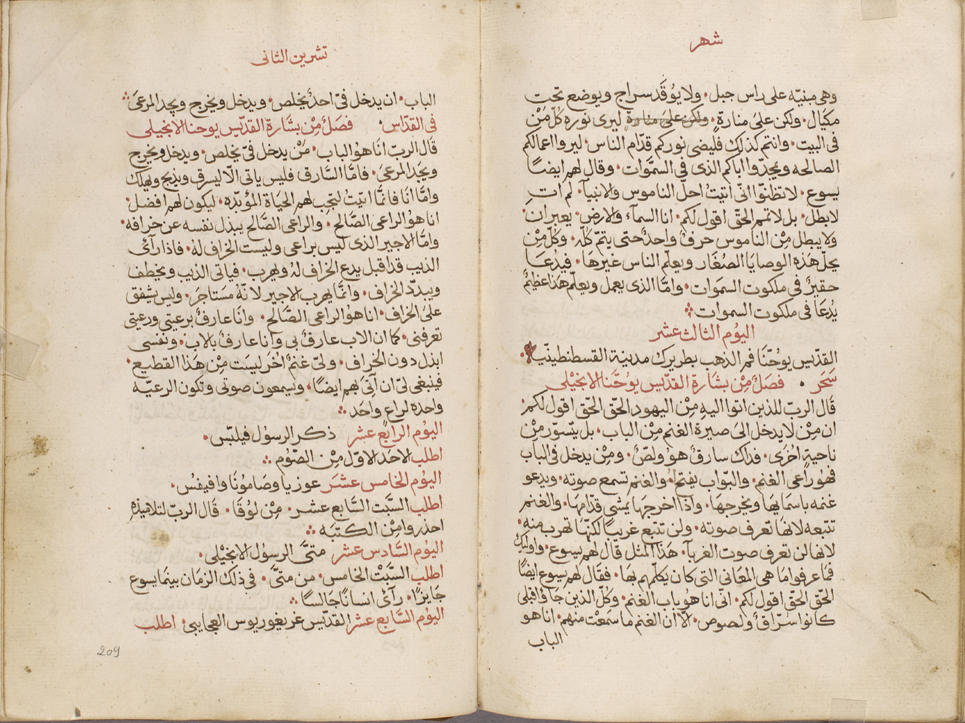 شهر
وهى مبنيّه على راس جبل٠ ولا يوُقَد سراج ويوضع تحت
مكيال٠ ولكن على منارةٍ٠ ولكن على منارة ليرى نوره كلّ مَن
فى البيت٠ وانتم كذلك فليضى نوركم قدّام الناس٠ ليروا اعمالكم
الصالحه ويمجّدوا اباكم الذى فى السّموات٠ وقال لهم ايضًا
يسوع٠ لا تظنّوا انّى اتيتُ احلّ الناموس ولانبيا٠ لم اتِ
لابطل٠ بل لاتمم٠ الحقّ اقول لكم٠ انّ السمآء ولارض يعبران٠
ولا يبطل مِنْ الناموس حرفٌ واحدٌ حتى يتمّ كلّه٠ وكلّ مَنْ
يحلّ هَذه الوصايا الصّغار ويعلّم الناس غيرها٠ فيدُعَا
حقيرٌ فى ملكوت السموات٠ وامّا الذى يعمل ويعلّم هذا عظيمٌ
يُدعَا فى ملكوت السموات
اليوم الثالث عشر
القدّيس يوحَنّا فم الذهب بطريرك مدينة القسطنطينيّه
سَحَر ٠ فصَلٌ مِنْ بشارة القدّيس يوُحَنّا الانجيلى
قال الربّ للذين اتوا اليهِ مِنْ اليهود الحقّ الحقّ اقول لكم٠
ان مَن لا يدخل الىَ صيرة الغنم مِنْ الباب٠ بل يتسوّر مِنْ
ناحيةٍ اخُرَى٠ فداك سارقٌ هوُ ولصٌ٠ ومَن يدخل فى الباب
فهوُ راعى الغنم٠ والبوّاب يفتح لهُ٠ والغنم تسمع صوته٠ ويدعو
غنمه باسمايها ويخرجها٠ واذا اخرجها يمشى قدّامها٠ والغنم
تتبعه لانها تعرف صوته٠ ولن تتبع غريبًا لكنّها تهرب منه٠
لانها لن تعرف صوت الغربآ٠ هَذا المثل قال لهم يسوع٠ واوليك
فما عرفوا ما هى المعَانى التى كان يكلّمهم بها٠ فقال لهم يسوع ايضًا
الحقّ الحقّ اقول لكم٠ انّى انا هو باب الغنم٠ وكلّ الذين جآوا قبلى
كانوا سُرّاقٌ ولصوص٠ الّا ان الغنم ما سمعَت منهم٠ انا هو
الباب
تشرين الثانى
الباب٠ ان يدخل فىّ احدٌ يخلص٠ ويدخل ويخرج ويجد المرعَى
فى القدّاس٠ فصَلٌ مِنْ بشارة القدّيس يوحنا الانجيلى
قال الرب انا هو الباب٠ مَنْ يدخل فىّ يخلص٠ ويدخل ويخرج
ويجد المرعىَ٠ فامّا السّارق فليس ياتى الّا ليسرق ويذبح ويهلك
وامّا انا فانّما اتيتُ لتجب لهم الحياة المؤبّده٠ ليكون لهم افضل٠
انا هو الراعى الصّالح٠ والراعى الصّالح يبذل نفسه عن خرافه٠
وامّا الاجير الذى ليس براعى وليست الخراف لهُ٠ فاذا رآى
الذيب قد اقبل يدع الخراف لهُ ويهرب٠ فياتى الذيب ويخطف
ويبدّد الخراف٠ وانّما يهرب الاجير لانّهُ مستاجرٌ٠ وليس يشفق
على الخراف٠ انا هو الراعى الصّالح٠ وانا عارفٌ برعيتى ورعيتى
تعرفنى٠ كما ان الاب عارفٌ بى وانا عارفٌ بلاب٠ ونفسى
ابذل دون الخراف٠ ولى غنمٌ اخر ليست مِنْ هَذا القطيع٠
فينبغى لى ان آتى بهم ايضًا٠ ويسمعون صوتى وتكون الرعيّه
واحدةٌ لراعٍ واحَد
اليوم الرابع عشر ذكر الرسول فيلبّس٠
اطلب الاحد الاوّل مِنْ الصّوم
اليوم الخامس عشر عوزيا وصامونا وافيفس٠
اطلب السّبت السّابع عشر٠ مِن لوقا٠ قال الربّ لتلاميذهِ
احذروا مِنْ الكتبَه
اليوم السّادس عشر متىّ الرسول الانجيلى٠
اطلب السّبت الخامس٠ من متىّ٠ فى ذلك الزمان بينما يسوع
جايزًا٠ رآى انسانًا جَالسًا
اليوم السّابع عشر القدّيس غريغوريوس العجايبى٠ اطلب
209